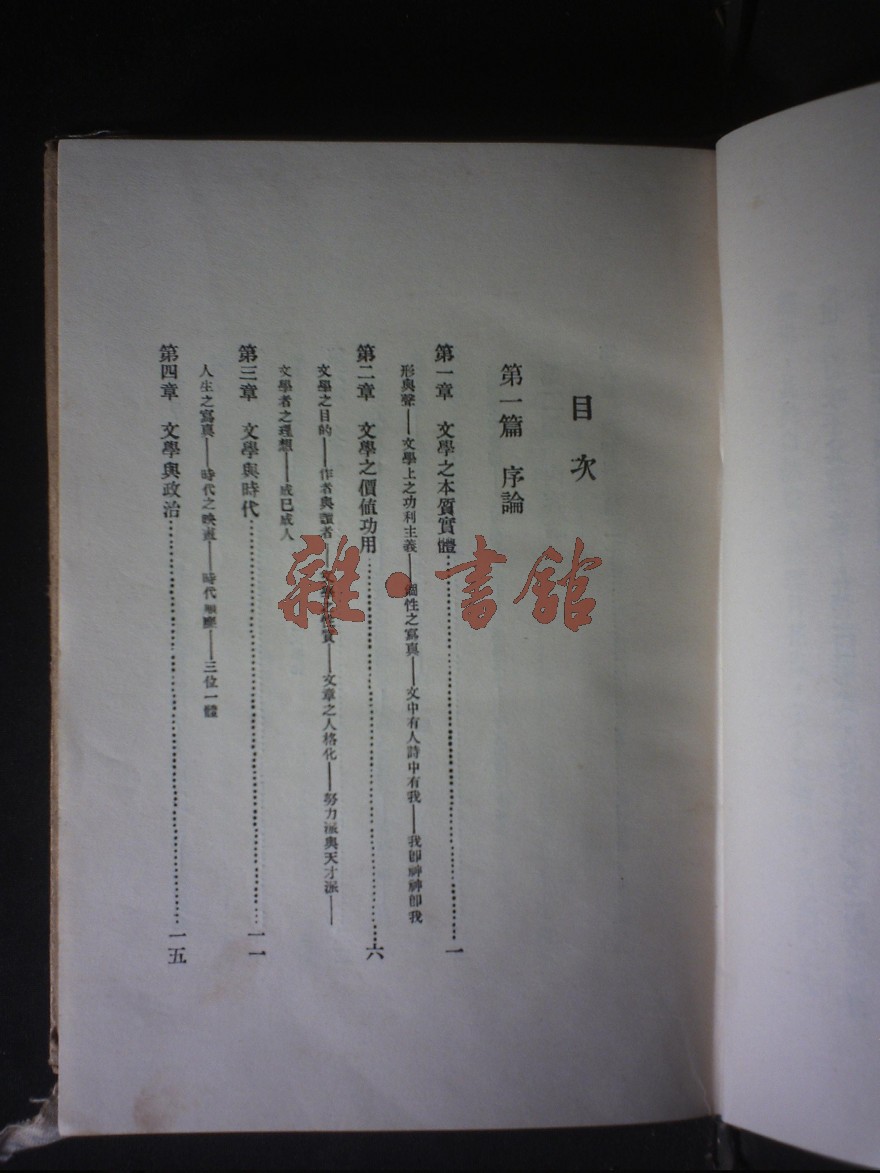 目次
第一篇 序論
第一章 文學之本質實體……一
形與聲——文學上之功利主義——個性之寫真——文中有人詩中有我——我卽神神卽我
第二章 文學之價値功用……六
文學之目的——作者與讀者——文學之性質——文章之人格化——努力派與天才派——
文學者之理想——成己成人
第三章 文學與時代……一一
人生之寫真——時代之映畫——時代——三位一體
第四章 文學與政治……一五
雜·書館